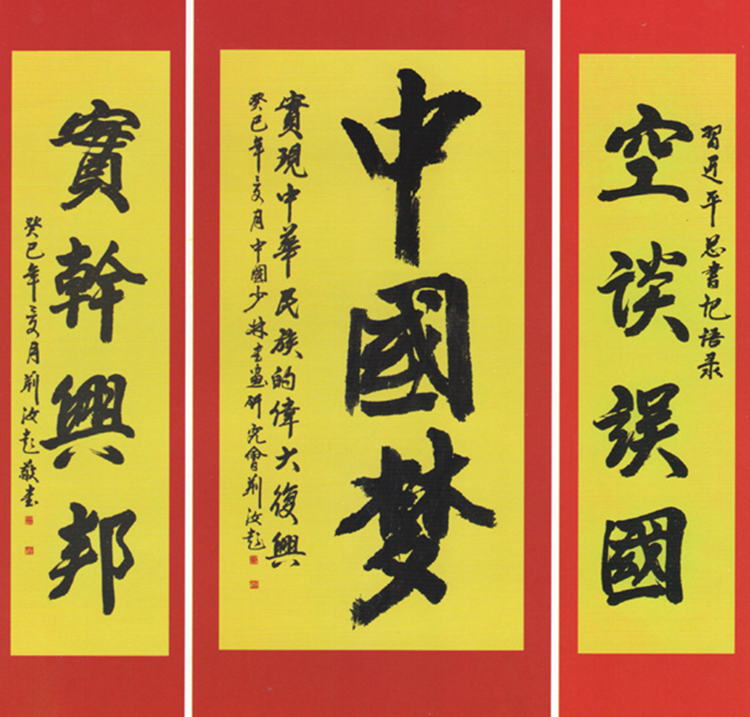 習近平总書记语录
空谈误國
中國梦
實現中華民族的偉大復興
癸巳年亥月中國少林书画研究會荆汝
實幹興邦
癸巳年亥月荆汝敬书